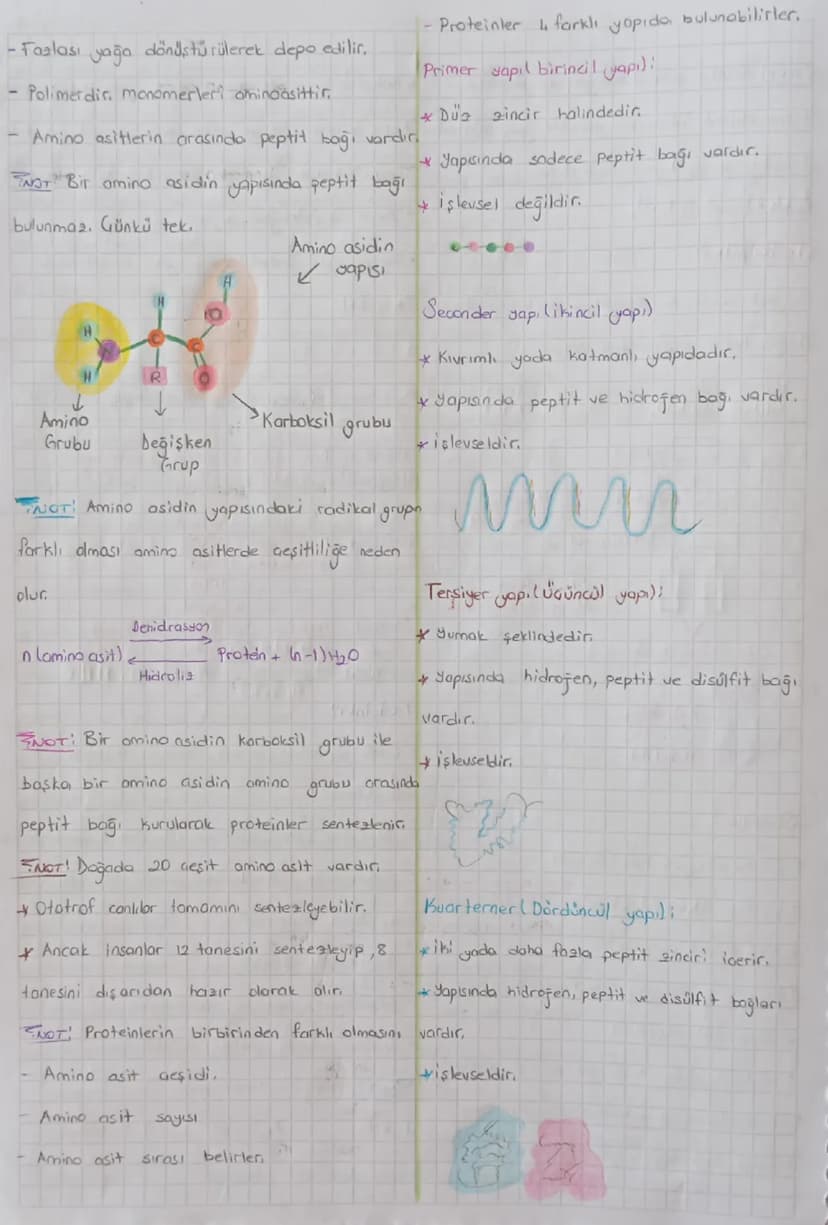 - Fazlası yağa dönüştürülerek depo edilir.
- Polimerdir. monomerleri aminoasittir.
- Amino asitlerin arasında peptit bağı vardır.
NOT: Bir amino asidin yapısında peptit bağı
bulunmaz. Çünkü tek.
Amino asidin
yapısı
H
H
O
H
N
C
C
H
R
O
Amino
Grubu
Değişken
Grup
Karboksil grubu
NOT: Amino asidin yapısındaki radikal grupn
farklı olması amino asitlerde çeşitliliğe neden
olur.
Denidrasyon
n(amino asit) Protein + (n-1)H2O
Hidroliz
NOT: Bir amino asidin karboksil grubu ile
başka bir amino asidin amino grubu arasında
peptit bağı kurularak proteinler sentezlenir.
NOT! Doğada 20 çeşit amino asit vardır.
* Ototrof canlılar tamamını sentezleyebilir.
* Ancak insanlar 12 tanesini sentezleyip, 8
tanesini dışarıdan hazır olarak alır.
NOT! Proteinlerin birbirinden farklı olmasını
- Amino asit çeşidi.
- Amino asit sayısı
- Amino asit sırası belirler.
- Proteinler 4 farklı yapıda bulunabilirler.
Primer yapı( birincil yapı):
* Düz zincir halindedir.
* Yapısında sadece peptit bağı vardır.
* işlevsel değildir.
Seconder yapı (ikincil yapı)
* Kıvrımlı yada katmanlı yapıdadır.
* Yapısında peptit ve hidrojen bağı vardır.
* işlevseldir.
Terşiyer yapı(üçüncül yapı):
* Yumak şeklindedir.
* Yapısında hidrojen, peptit ve disülfit bağı
vardır.
* işlevseldir.
Kuarterner (Dördüncül yapı):
* iki yada daha fazla peptit zinciri içerir.
* Yapısında hidrojen, peptit ve disülfit bağları
vardır.
* işlevseldir.